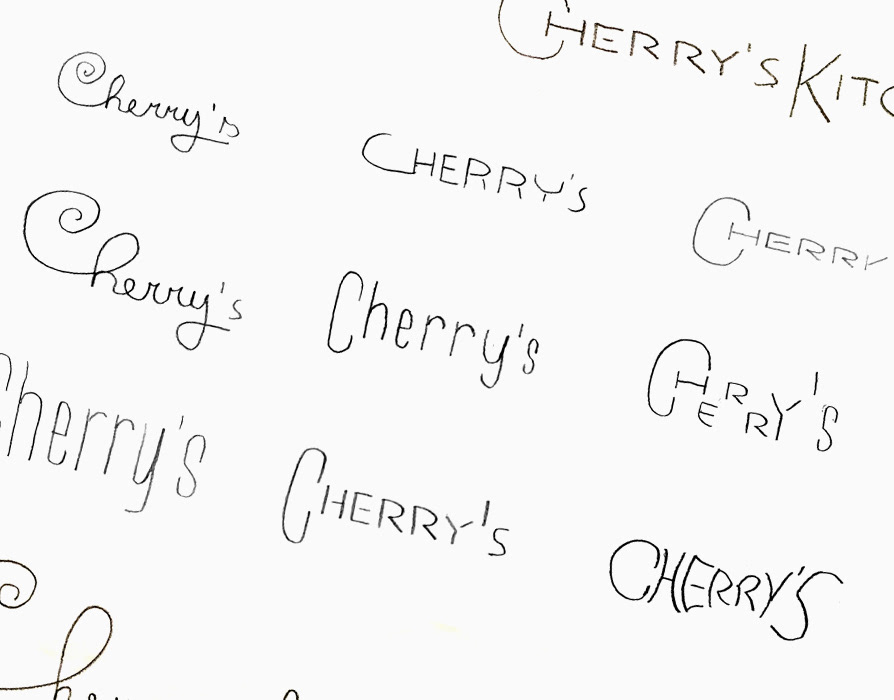 CHERRY'S KITC
Cherry's
CHERRY'S
CHERRY
Cherry's
Cherry's
CHERRY'S
Cherry's
CHERRY'S
CHERRY'S